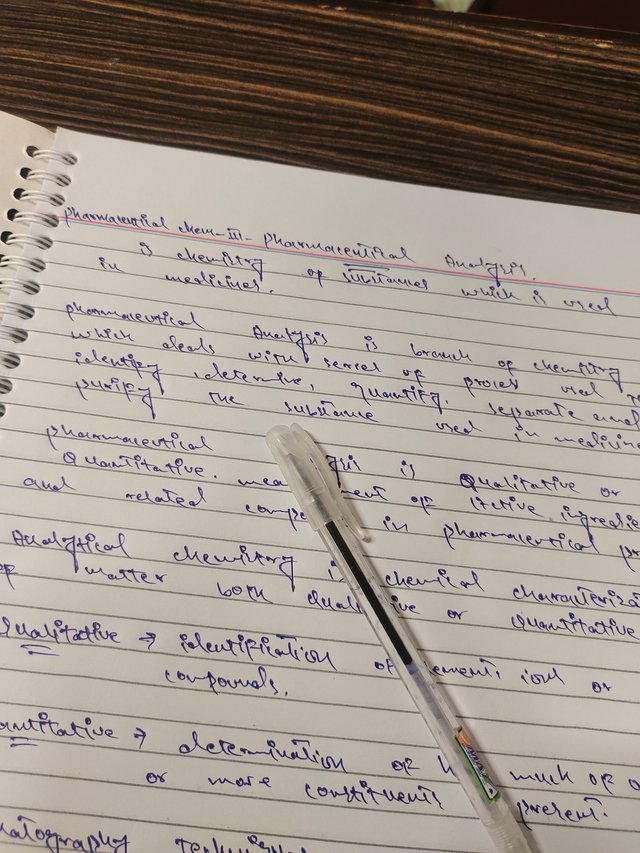 pharmaceutical chem-III- pharmaceutical Analysis.
is chemistry of substances which is used
in medicines.
pharmaceutical Analysis is branch of chemistry
which deals with series of proses used to
identify, determine, quantify, separate and
purify the substance used in medicine
pharmaceutical ysis is Qualitative or
Quantitative. mea ment of active ingredie
and related compo in pharmaceutical pr
Analytical chemistry is chemical characteriza
of matter both quali ive or quantitative
Qualitative → identification of ement, ions or
compounds.
antitative → determination of h much of o
or more constituents present.
matography